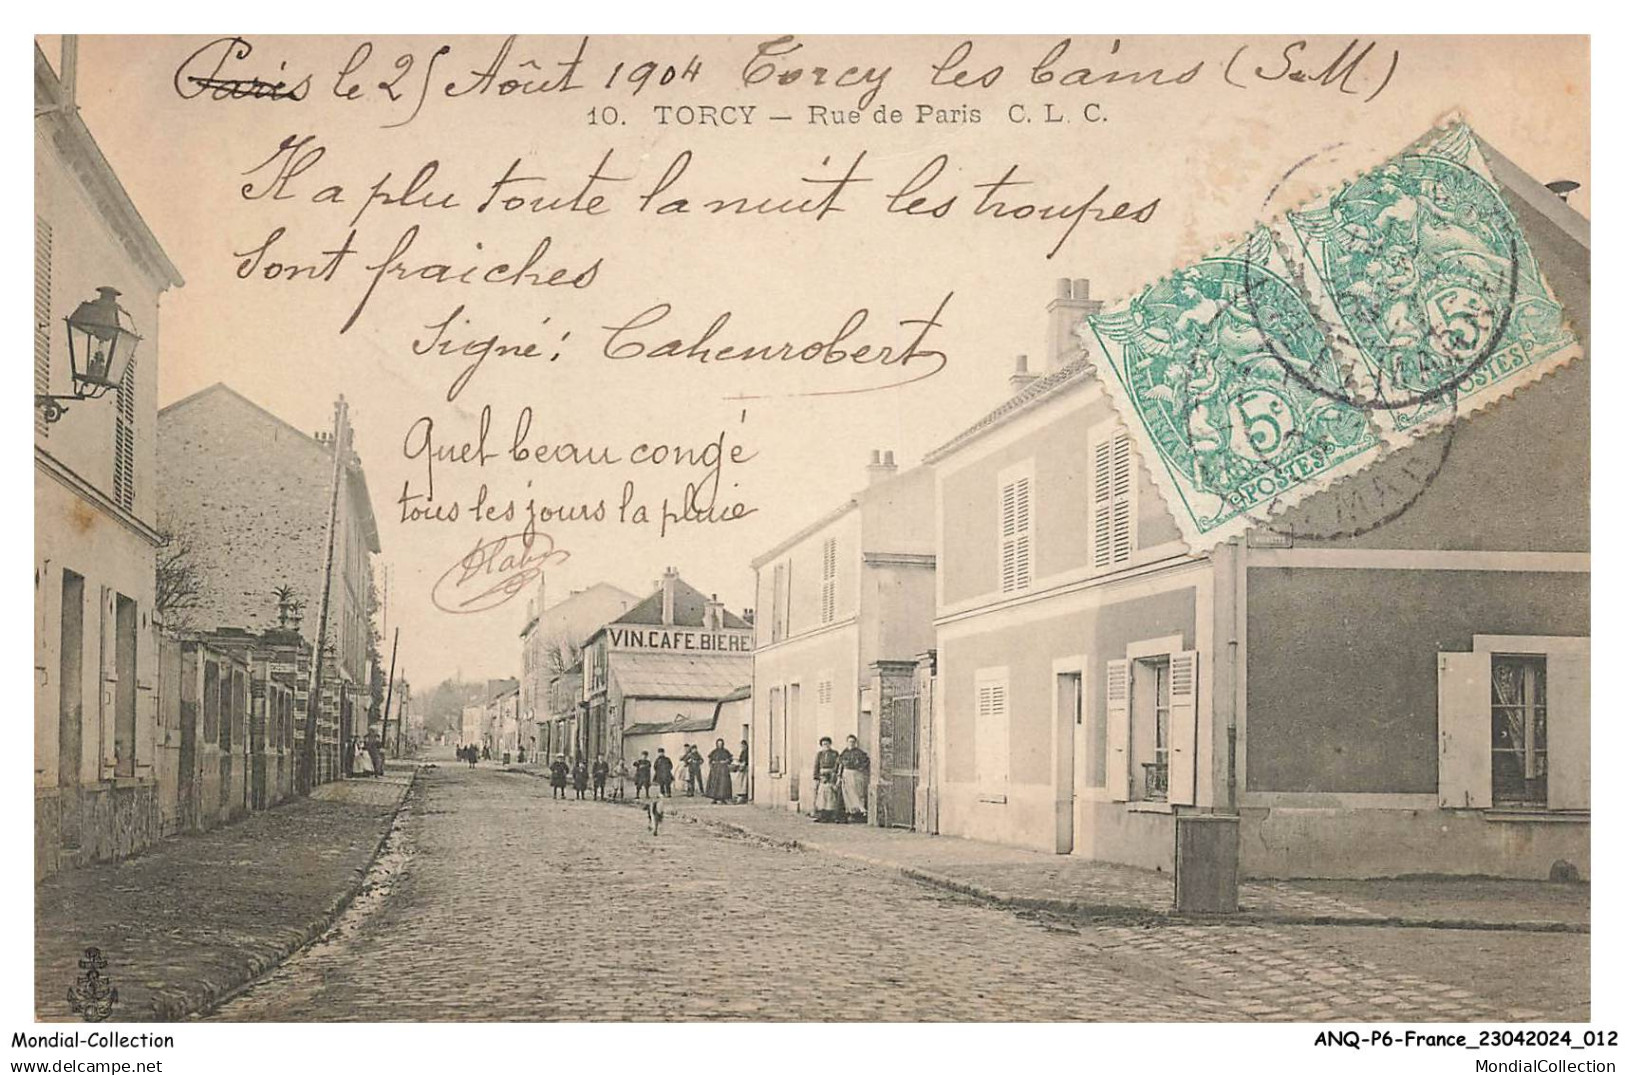 Paris le 25 Août 1904 Torcy les bains (S&M)
10. TORCY — Rue de Paris C. L. C.
Il a plu toute la nuit les troupes
Sont fraiches
Signé: Cahenrobert
Quel beau congé
tous les jours la pluie
5c
POSTES
5c
POSTES
VIN.CAFE.BIERE
Mondial-Collection
ANQ-P6-France_23042024_012
mondial-collection
MondialCollection